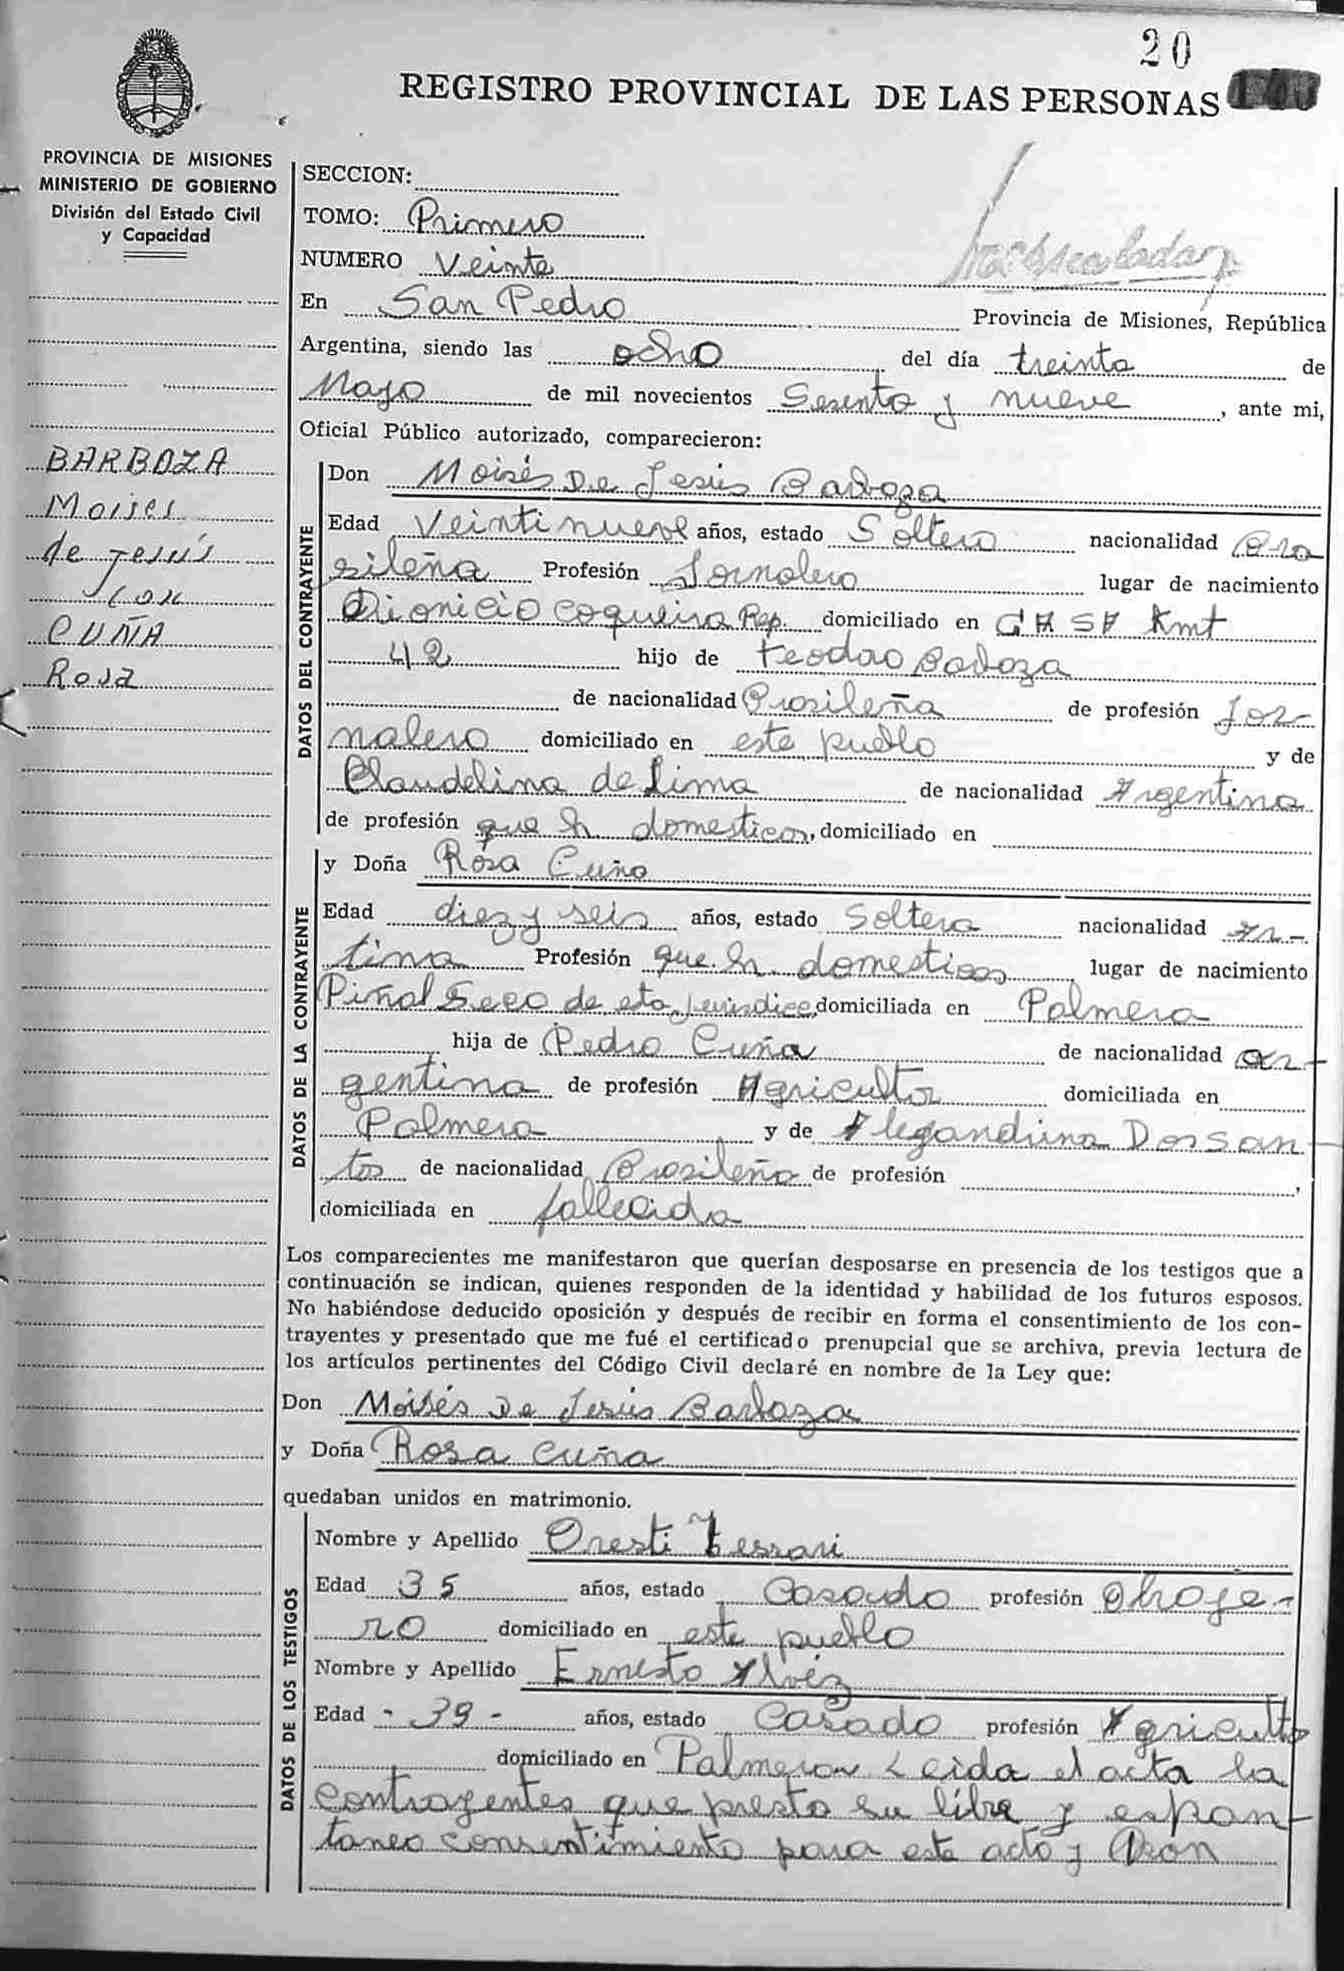 20
REGISTRO PROVINCIAL DE LAS PERSONAS
PROVINCIA DE MISIONES
MINISTERIO DE GOBIERNO
División del Estado Civil
y Capacidad
BARBOZA
Moises
de Jesús
con
CUÑA
Rosa
SECCION:
TOMO: Primero
NUMERO Veinte
En San Pedro Provincia de Misiones, República
Argentina, siendo las ocho del día treinta de
Mayo de mil novecientos Sesenta y nueve, ante mi,
Oficial Público autorizado, comparecieron:
DATOS DEL CONTRAYENTE
Don Moisés De Jesús Barboza
Edad Veintinueve años, estado Soltero nacionalidad Bra
sileña Profesión Jornalero lugar de nacimiento
Dionicio Coqueira Rep. domiciliado en Kmt
42 hijo de Teodao Barboza
de nacionalidad Brasileña de profesión Jor-
nalero domiciliado en este pueblo y de
Claudelina de Lima de nacionalidad Argentina
de profesión que h. domesticos, domiciliado en
DATOS DE LA CONTRAYENTE
y Doña Rosa Cuña
Edad diez y seis años, estado Soltera nacionalidad
tina Profesión que h. domesticos lugar de nacimiento
Piñal Seco de domiciliada en Palmera
hija de Pedro Cuña de nacionalidad ar-
gentina de profesión Agricultor domiciliada en
Palmera y de Dos San
tos de nacionalidad Brasileña de profesión
domiciliada en fallecida
Los comparecientes me manifestaron que querían desposarse en presencia de los testigos que a
continuación se indican, quienes responden de la identidad y habilidad de los futuros esposos.
No habiéndose deducido oposición y después de recibir en forma el consentimiento de los con-
trayentes y presentado que me fué el certificado prenupcial que se archiva, previa lectura de
los artículos pertinentes del Código Civil declaré en nombre de la Ley que:
Don Moisés De Jesús Barboza
y Doña Rosa Cuña
quedaban unidos en matrimonio.
DATOS DE LOS TESTIGOS
Nombre y Apellido Oresti Tessari
Edad 35 años, estado Casado profesión Chofe-
ro domiciliado en este pueblo
Nombre y Apellido Ernesto Alvez
Edad - 39 - años, estado Casado profesión Agriculto
domiciliado en Palmera Leida el acta la
Contrayentes que presto su libre y espon-
taneo consentimiento para este acto y